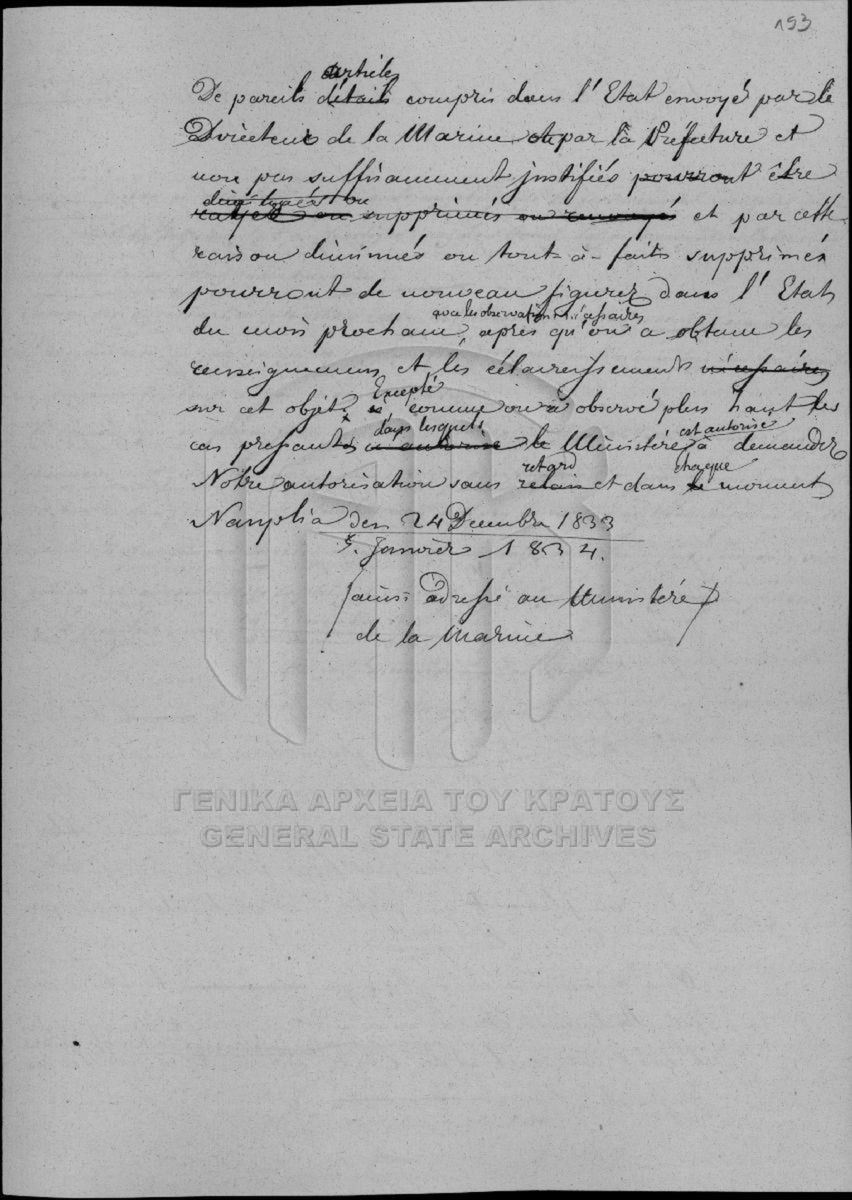 193
articles
De pareils détails compris dans l'Etat envoyé par le
Directeur de la Marine et par la Préfecture et
non pas suffisamment justifiés pourront être
ou
rayés ou supprimés ou renvoyés et par cette
raison diminués ou tout-à-faits supprimés
pourront de nouveau figurer dans l'Etat
avec les observations nécessaires
du mois prochain, après qu'on a obtenu les
renseignemens et les éclaircissements nécessaires
Excepté
sur cet objet, comme on a observé plus haut les
dans lesquels est autorisé
cas pressants, a autorisé le Ministére à demander
retard chaque
Notre autorisation sans relais et dans le moment
Nauplia den 24 Decembre 1833
5. Janvier 1834.
ainsi adressé au Ministére
de la Marine
ΓΕΝΙΚΑ ΑΡΧΕΙΑ ΤΟΥ ΚΡΑΤΟΥΣ
GENERAL STATE ARCHIVES